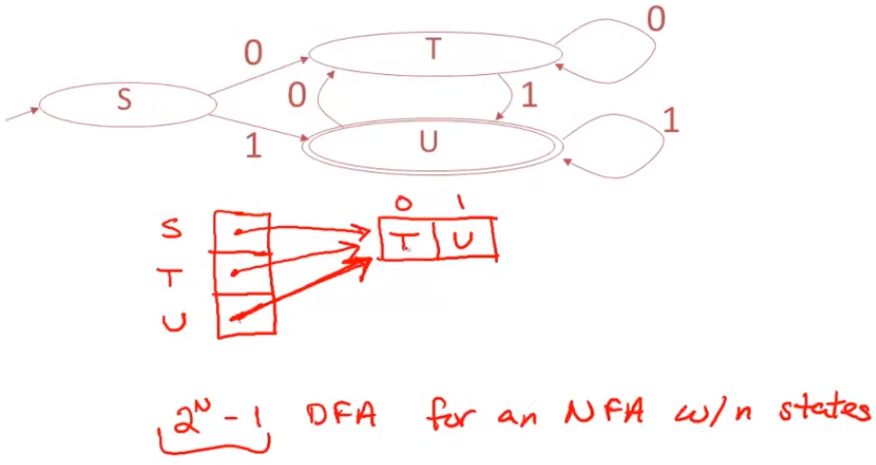 0
T
0
S
0
1
1
U
1
0 1
S T U
T
U
2^N - 1 DFA for an NFA w/n states